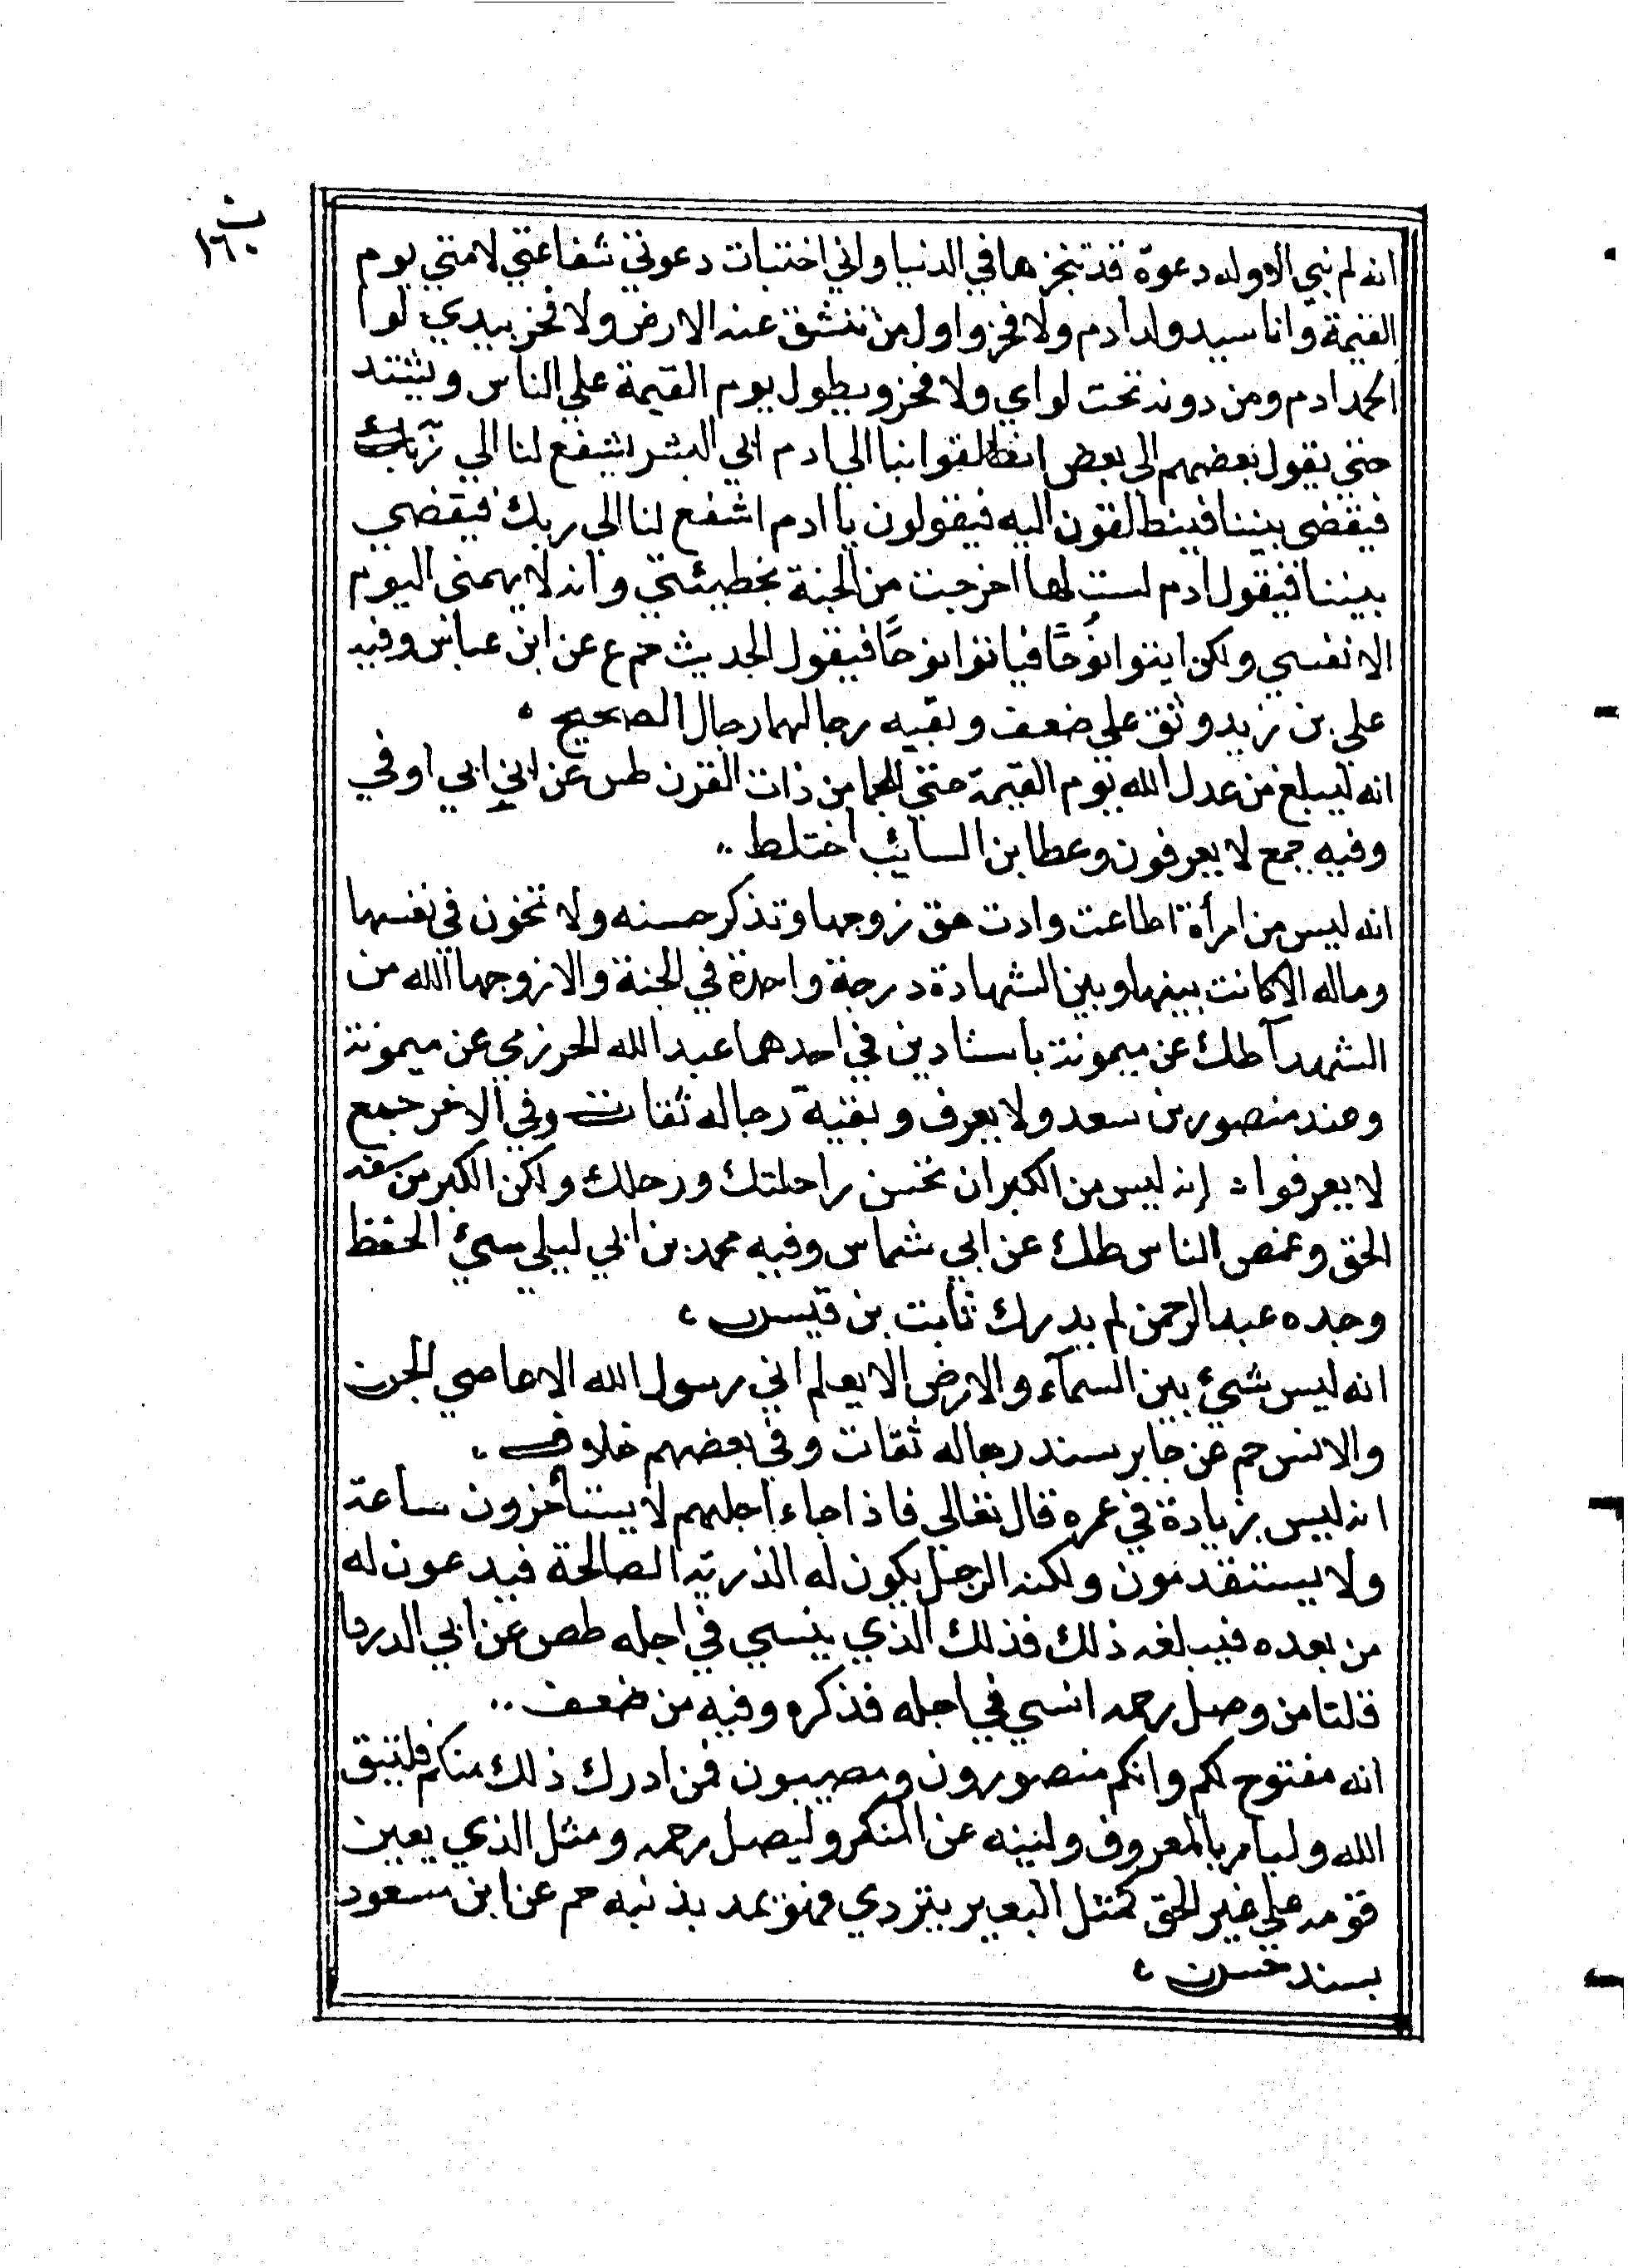 ب
١٦٠
انه لم نبي الاوله دعوة قد تنجزها في الدنيا واني اختبات دعوتي شفاعتي لامتي يوم
القيمة وانا سيد ولد ادم ولا فخر واول من تنشق عنه الارض ولا فخر بيدي لوا
الحمد ادم ومن دونه تحت لواي ولا فخر ويطول يوم القيمة علي الناس ويشتد
حتي يقول بعضهم الي بعض انطلقوا بنا الي ادم ابي البشر يشفع لنا الي ربك
فيقضي بيننا فينطلقون اليه فيقولون يا ادم اشفع لنا الي ربك فيقضي
بيننا فيقول ادم لست لها اخرجت من الجنة بخطيئتي وانه لا يهمني اليوم
الا نفسي ولكن ايتوا نوحًا فياتوا نوحًا فيقول الحديث حم ع عن ابن عباس وفيه
علي بن زيد وثق علي ضعف وبقيه رجالهما رجال الصحيح
انه ليبلغ من عدل الله يوم القيمة حتي للجما من ذات القرن طس عن ابن ابي اوفي
وفيه جمع لا يعرفون وعطا بن السائب اختلط
انه ليس من امرأة اطاعت وادت حق زوجها وتذكر حسنه ولا تخون في نفسها
وماله الا كانت بينها وبين الشهادة درجة واحدة في الجنة والا زوجها الله من
الشهدآ طك عن ميمونة باسنادين في احدهما عبد الله الحرزمي عن ميمونة
وعنه منصور بن سعد ولا يعرف وبقية رجاله ثقات وفي الاخر جمع
لا يعرفوا إنه ليس من الكبر ان تحسن راحلتك ورحلك ولكن الكبر من سفه
الحق وغمص الناس طك عن ابي شماس وفيه محمد بن ابي ليلي سيئ الحفظ
وجده عبد الرحمن لم يدرك ثابت بن قيس
انه ليس شيئ بين السمآء والارض الا يعلم اني رسول الله الا عاصي الجن
والانس حم عن جابر بسند رجاله ثقات وفي بعضهم خلاف
انه ليس بزيادة في عمره قال تعالي فاذا جاء اجلهم لا يستأخرون ساعة
ولا يستقدمون ولكنه الرجل يكون له الذرية الصالحة فيدعون له
من بعده فيبلغه ذلك فذلك الذي ينسي في اجله طص عن ابي الدردا
قلنا من وصل رحمه انسي في اجله فذكره وفيه من ضعف
انه مفتوح لكم وانكم منصورون ومصيبون فمن ادرك ذلك منكم فليتق
الله وليامر بالمعروف ولينه عن المنكر وليصل رحمه ومثل الذي يعين
قومه علي غير الحق كمثل البعير يتردي فهو يمد بذنبه حم عن ابن مسعود
بسند حسن